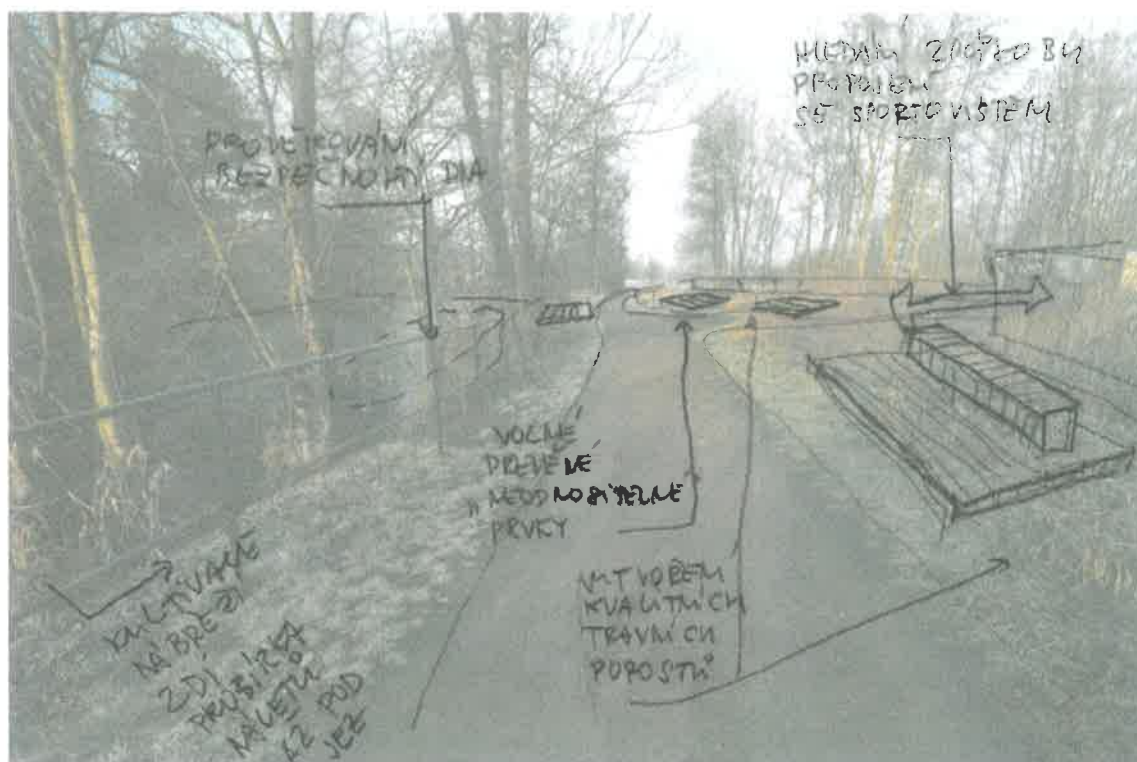 HLEDÁNÍ ZPŮSOBU
PROPOJENÍ
SE SPORTOVIŠTĚM
BEZPEČNOSTI, DIA
VOLNÉ
DŘEVĚNÉ
"NEODNOSITELNÉ
PRVKY
VYTVOŘENÍ
KVALITNÍCH
TRAVNÍCH
POROSTŮ
KULTIVACE
NÁBŘEŽÍ
ZDÍ
PROBÍRKA
NÁLETŮ
AŽ POD
JEZ